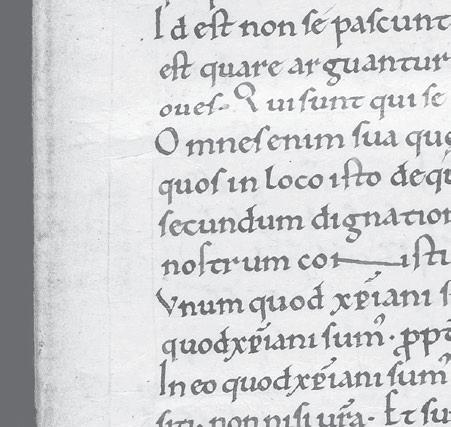 Id est non se pascunt
est quare arguantur
oues. Qui sunt qui se
Omnes enim sua que
quos in loco isto de q
secundum dignation
nostrum co isti
Vnum quod xp̄iani s
quod xp̄iani sum᷒. ꝓpt
In eo quod xp̄iani sum᷒
siti. non nisi ur̄a. Et su